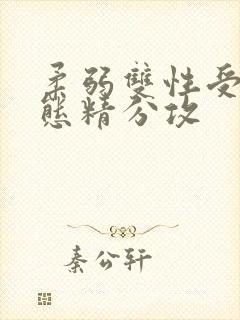 柔弱雙性受
態精分攻
秦公轩